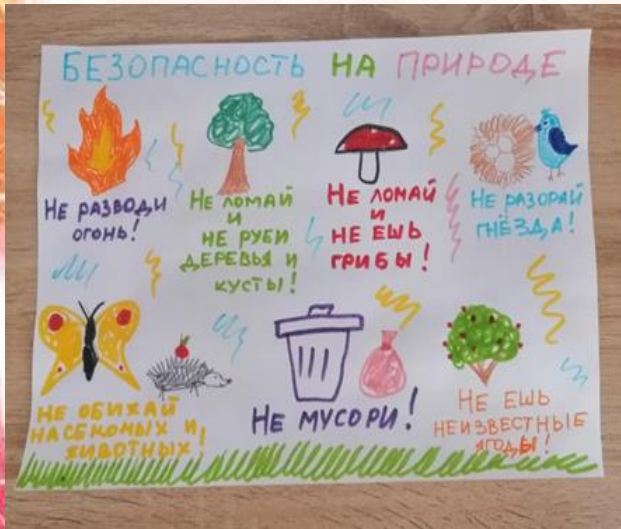 БЕЗОПАСНОСТЬ НА ПРИРОДЕ
НЕ РАЗВОДИ
ОГОНЬ!
НЕ ЛОМАЙ
И
НЕ РУБИ
ДЕРЕВЬЯ И
КУСТЫ!
НЕ ЛОМАЙ
И
НЕ ЕШЬ
ГРИБЫ!
НЕ РАЗОРАЙ
ГНЁЗДА!
НЕ ОБИЖАЙ
НАСЕКОМЫХ И
ЖИВОТНЫХ!
НЕ МУСОРИ!
НЕ ЕШЬ
НЕИЗВЕСТНЫЕ
ЯГОДЫ!